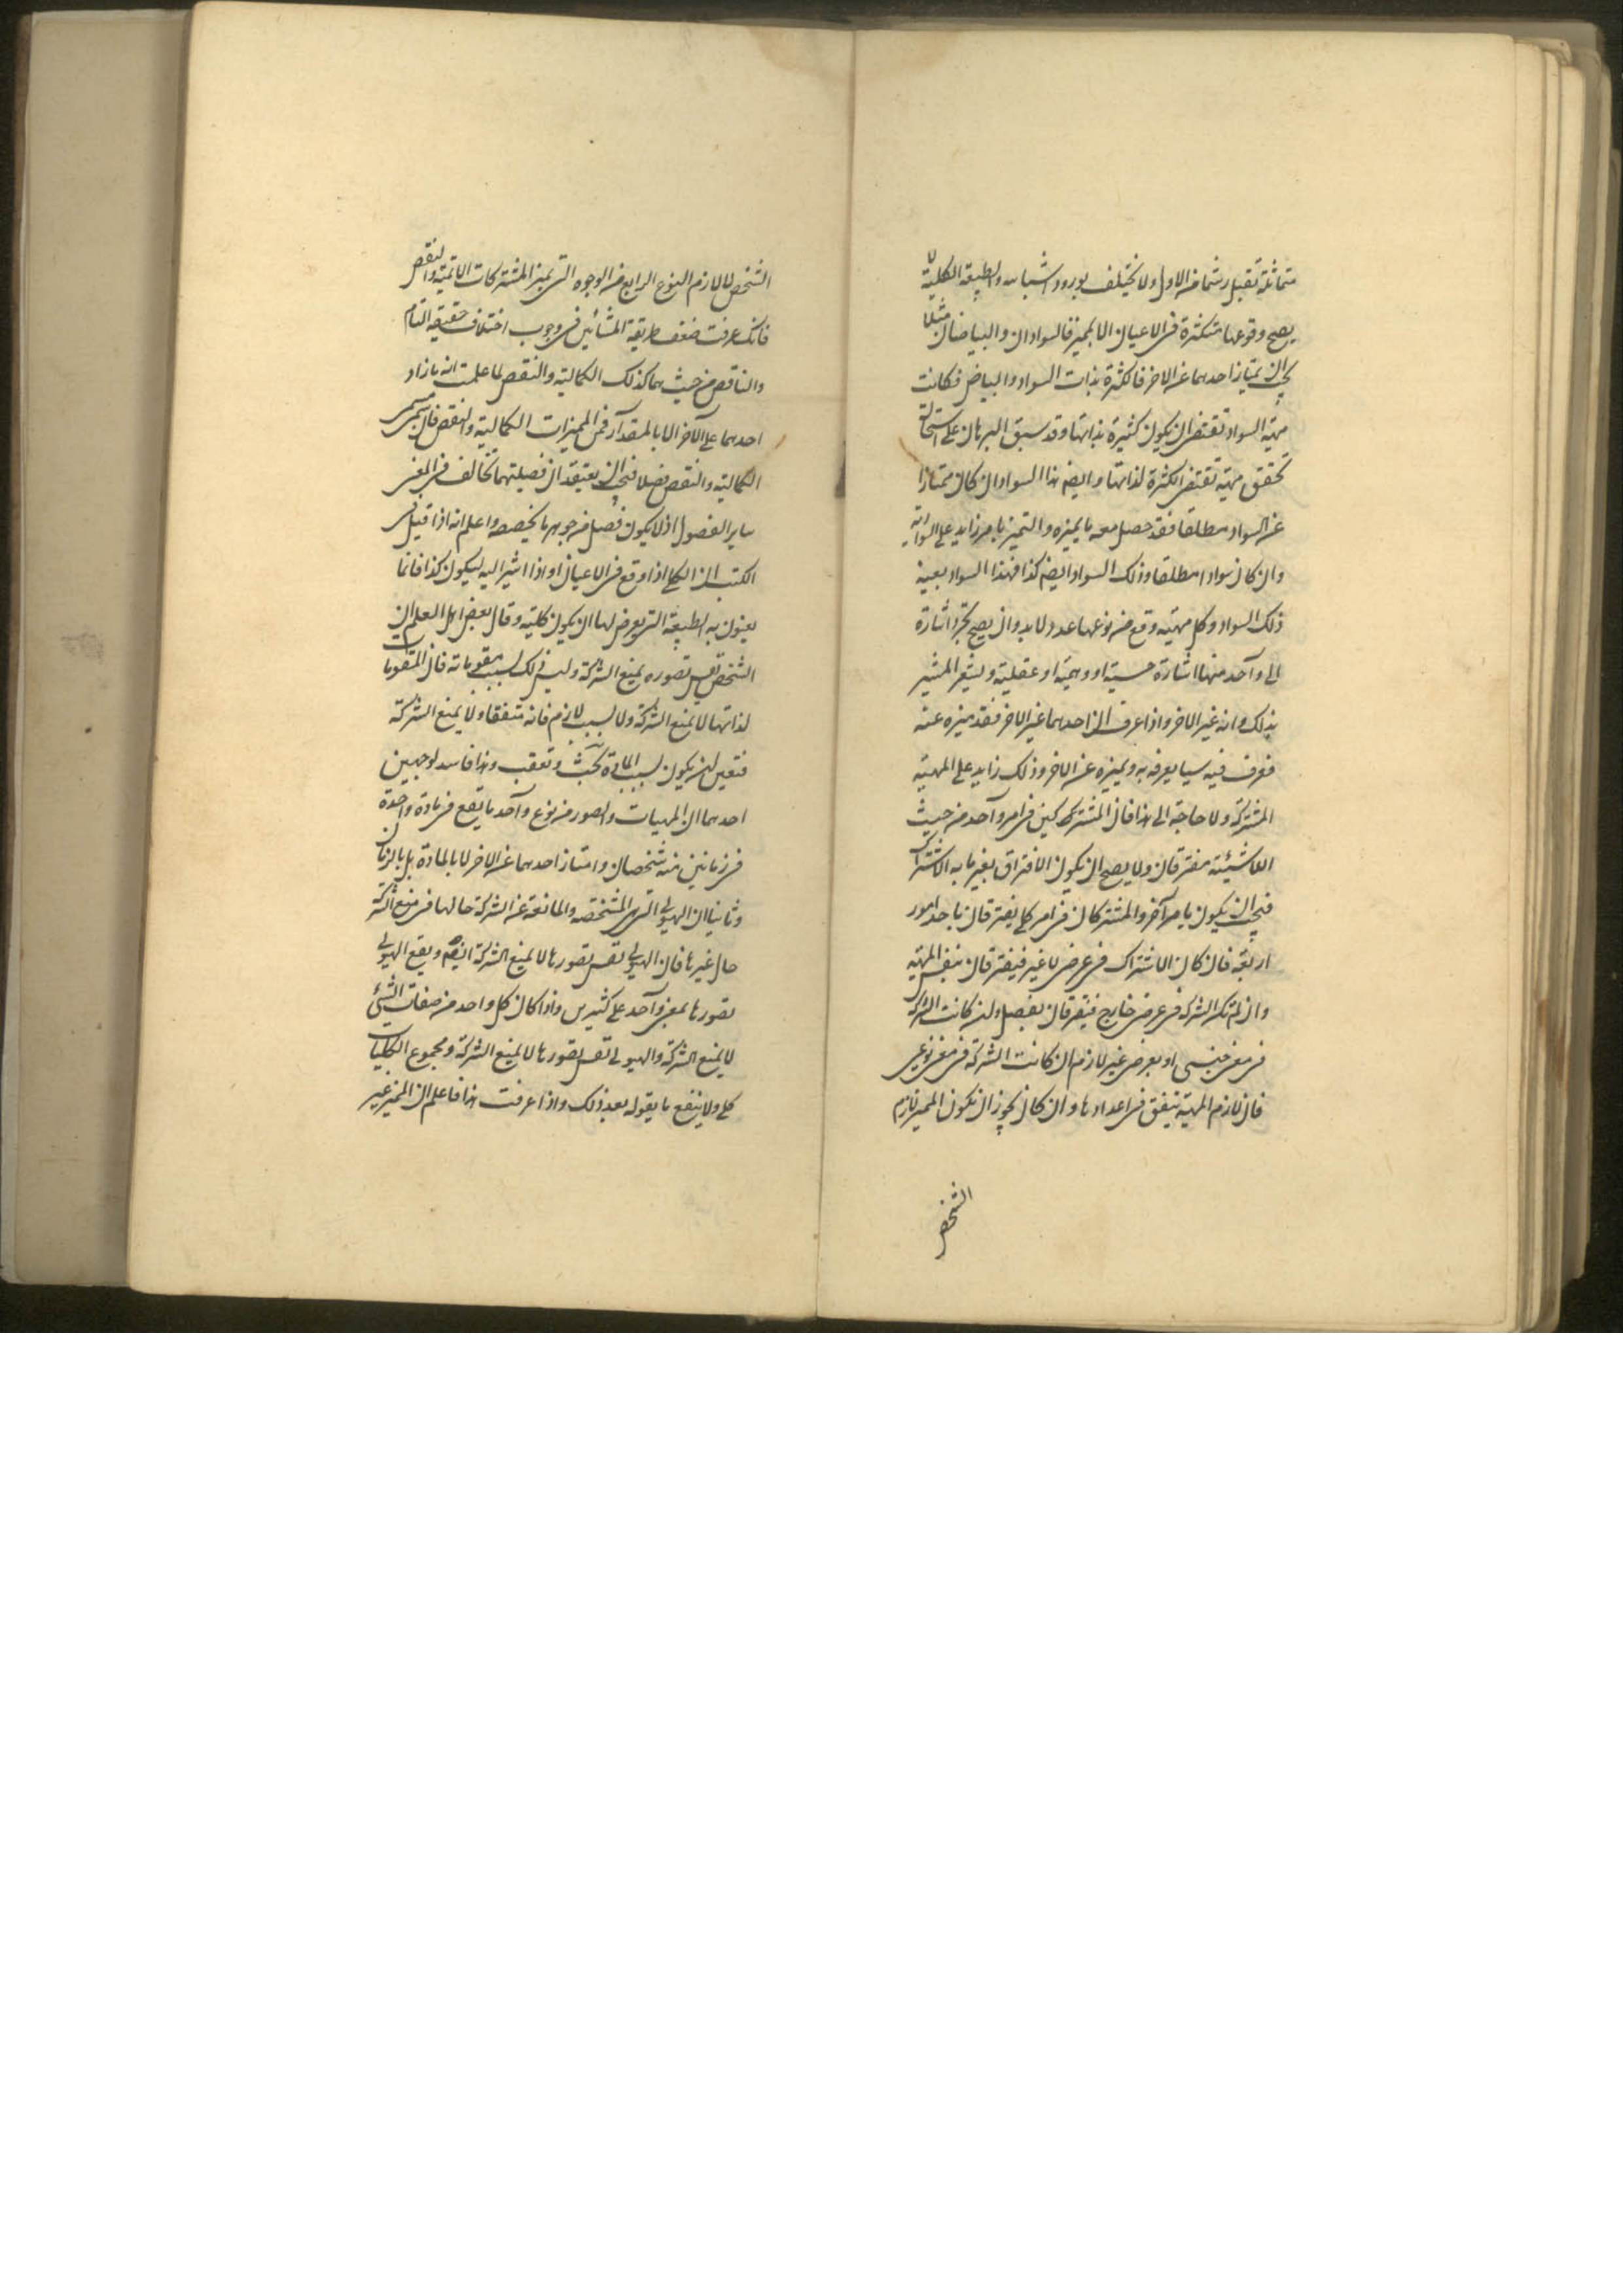 متماثلة تقبل رسما من الاول ولا يختلف بورود اشباهه والطبيعة الكلية لا
يصح وقوعها متكثرة فى الاعيان الا بمميز فالسوادان والبياضان مثلا
يجب ان يمتاز احدهما عن الاخر فالكثرة بذات السواد والبياض فكانت
مهية السواد تقتضى ان يكون كثيرة بذاتها وقد سبق البرهان على استحالة
تحقق مهية تقتضى الكثرة لذاتها وايضا هذا السواد ان كان ممتازا
عن السواد مطلقا فقد حصل معه ما يميزه والتميز بامر زايد على السوادية
وان كان سوادا مطلقا وذلك السواد ايضا كذا فهذا السواد بعينه
ذلك السواد وكل مهية وقع من نوعها عدد ولا بد وان يصح تجرد اشارة
الى واحد منها اشارة حسية او وهمية او عقلية ويشعر المشير
بذلك وانه غير الاخر واذا عرف ان احدهما غير الاخر فقد ميزه عنه
فعرف فيه سيا يعرفه به ويميزه عن الاخر وذلك زايد على المهية
المشتركة ولا حاجة الى هذا فان المشتركين فى امر واحد من حيث
اللاشيئية مفترقان ولا يصح ان يكون الافتراق بغير ما به الاشتراك
فيجب ان يكون بامر آخر والمشتركان فى امر كلى يفترقان باحد امور
اربعة فان كان الاشتراك فى عرضى لا غير فيفترقان بنفس المهية
وان لم تكن الشركة فى عرضى خارج فيفترقان بفصل ان كانت الشركة
فى معنى جنسى او بعرضى غير لازم ان كانت الشركة فى معنى نوعى
فان لازم المهية يتفق فى اعدادها وان كان يجوز ان يكون المميز لازم
الشخص
الشخص لا لازم النوع الرابع من الوجوه التى يميز المشتركات الاتمية والنقص
فانك عرفت ضعف طريقة المشائين فى وجوب اختلاف حقيقة التام
والناقص من حيث هما كذلك الكمالية والنقص لما علمت انه ما زاد
احدهما على الآخر الا بالمقدار فمن المميزات الكمالية والنقص فان سمى مسمى
الكمالية والنقص فصلا فيجب ان يعتقد ان فصيلتهما تخالف فى المعنى
ساير الفصول اذ لا يكون فصل من جوهر ما يخصصه واعلم انه اذا قيل فى
الكتب ان الكلى اذا وقع فى الاعيان او اذا اشير اليه ليكون كذا فانما
يعنون به الطبيعة التى يعرض لها ان يكون كلية وقال بعض اهل العلم ان
الشخص نفس تصوره يمنع الشركة وليس ذلك بسبب مقوماته فان المقومات
لذاتها لا يمنع الشركة ولا بسبب لازم فانه متفقا ولا يمنع الشركة
فتعين ان يكون بسبب المادة بحث وتعقب وهذا فاسد لوجهين
احدهما ان الهيات والصور من نوع واحد ما تقع فى مادة واحدة
فى زمانين منه شخصان وامتاز احدهما عن الاخر لا بالمادة بل بالزمان
وثانيا ان الهيولى التى هى المشخصة والمانعة عن الشركة حالها فى منع الشركة
حال غيرها فان الهيولى نفس تصورها لا يمنع الشركة ايضا ويقع الهيولى
بصورها بمعنى واحد على كثيرين واذا كان كل واحد من صفات الشئ
لا يمنع الشركة والهيولى نفس تصورها لا يمنع الشركة ومجموع الكليات
كلى ولا ينفع ما يقوله بعد ذلك واذا عرفت هذا فاعلم ان المميز غير